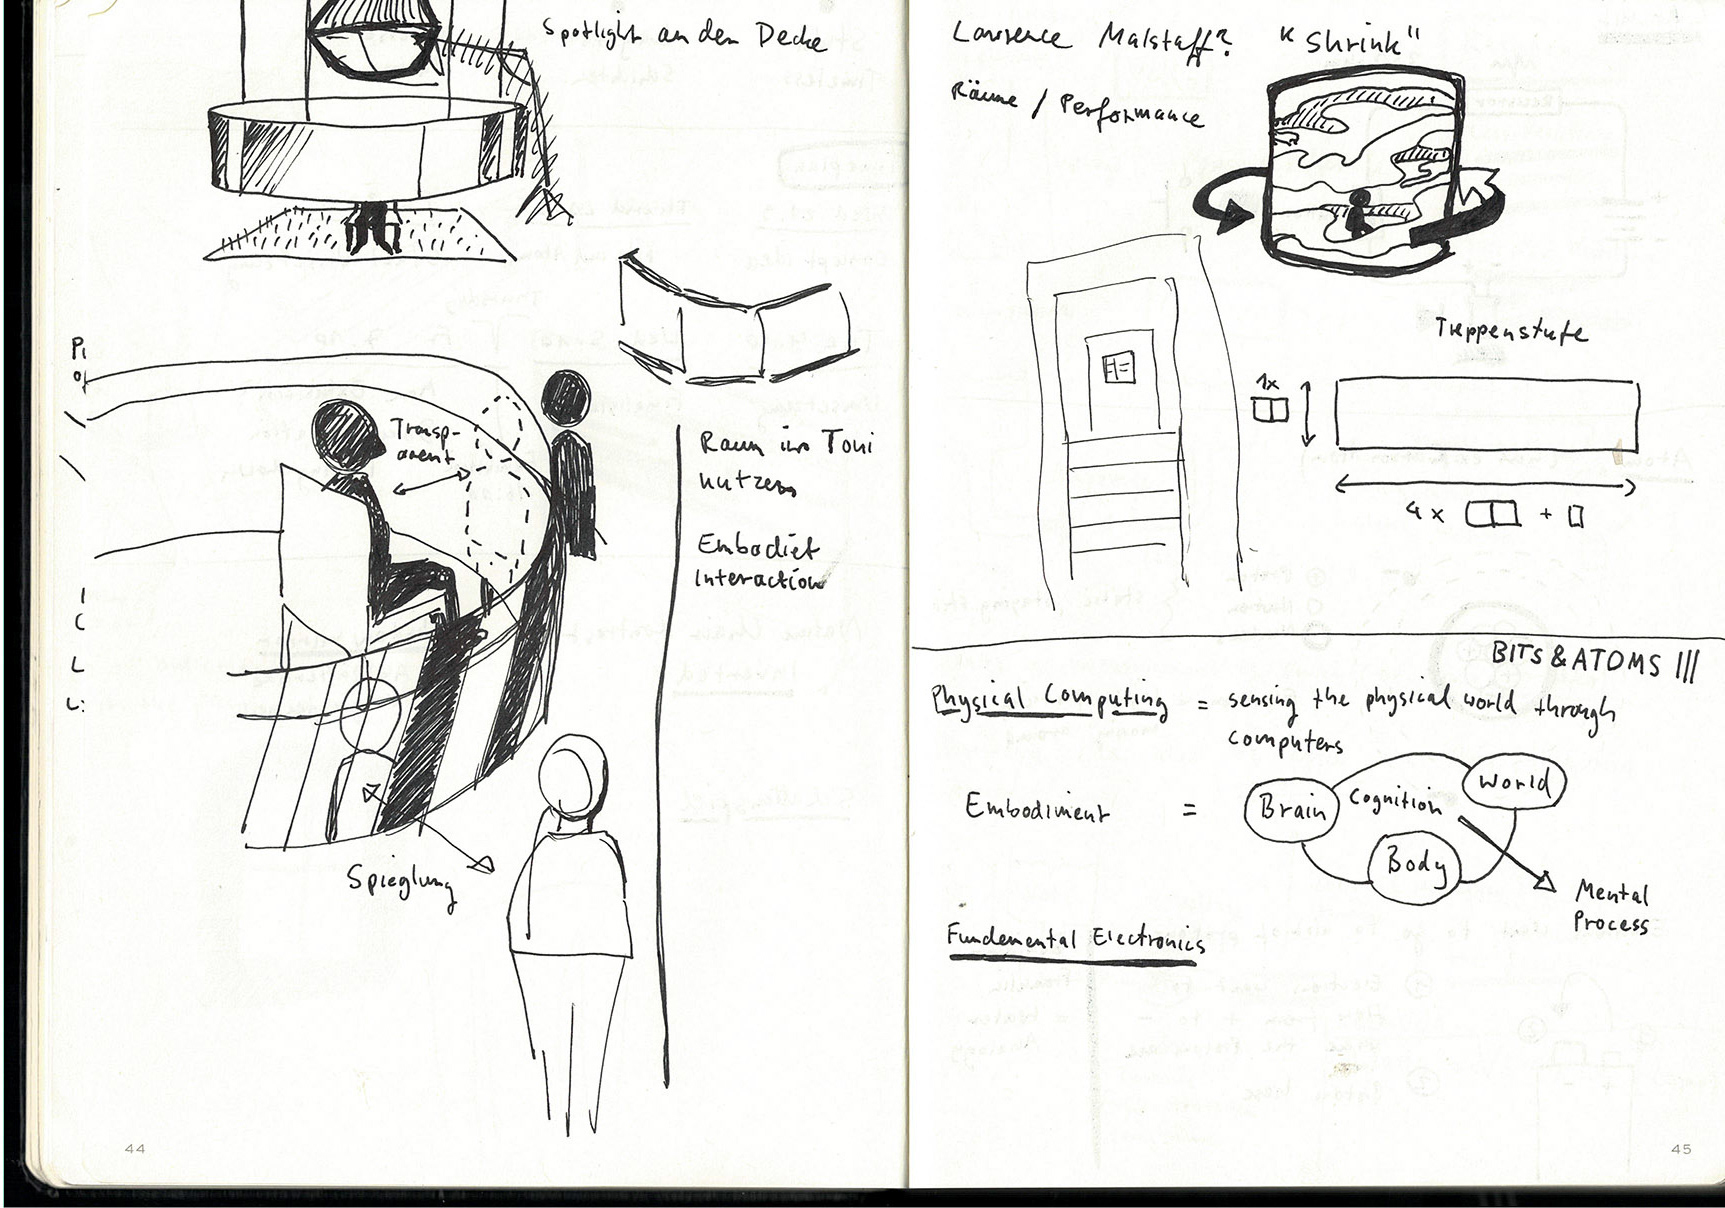 Spotlight an den Decke
Transp-
arent
Raum im Toni
nutzen
Embodiet
Interaction
Spieglung
44
Lawrence Malstaff? "Shrink"
Räume / Performance
Treppenstufe
1x
4x + 
BITS & ATOMS III
Physical Computing = sensing the physical world through
computers
Embodiment = Brain Cognition World
Body
Mental
Process
Fundemental Electronics
45